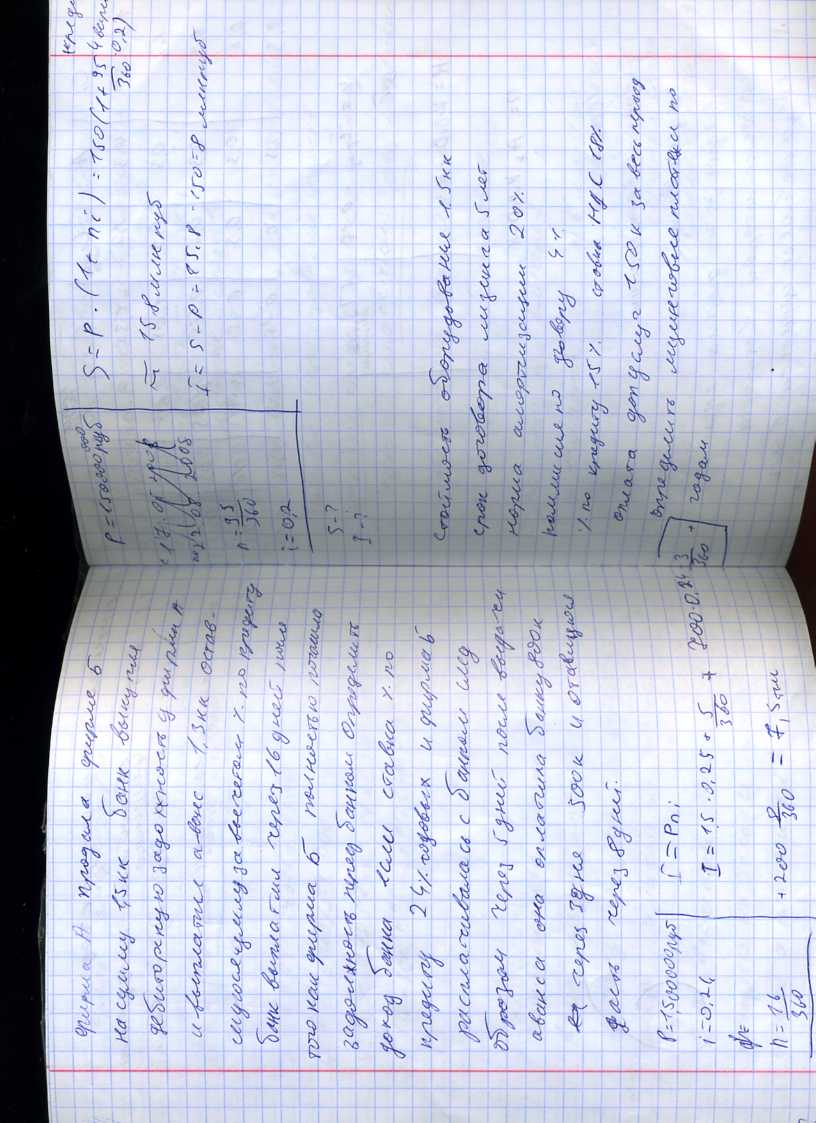 фирма А продала фирме Б
на сумму 1,5кк банк выкупил
дебиторскую задолжность у фирмы А
и выплатил аванс 1,3кк остав-
шуюся сумму за вычетом % по кредиту
банк выплатил через 16 дней после
того как фирма Б полностью погасила
задолжность перед банком Определить
доход банка если ставка % по
кредиту 24% годовых и фирма Б
расплачивалась с банком след
образом через 5 дней после выдачи
аванса она оплатила банку 800к
через 3 дня 500к и оставшуюся
часть через 8 дней.
P=1500000руб
i=0,24
n=16/360
I=Pni
I=1,5·0,25·5/360+700·0,24·3/360+
+200·8/360=7,5тыс
P=150000000руб
2005
n=95/360
i=0,2
S-?
I-?
4 вар
S=P·(1+ni)=150(1+95/360·0,2)
≈158млн руб
I=S-P=158-150=8 млн руб
Стоймость оборудования 1.5кк
срок договора лизинга 5 лет
норма амортизации 20%
комиссия по договору 4%
% по кредиту 15% ставка НДС 18%
оплата доп услуг 150к за весь период
определить лизинговые платежи по
годам